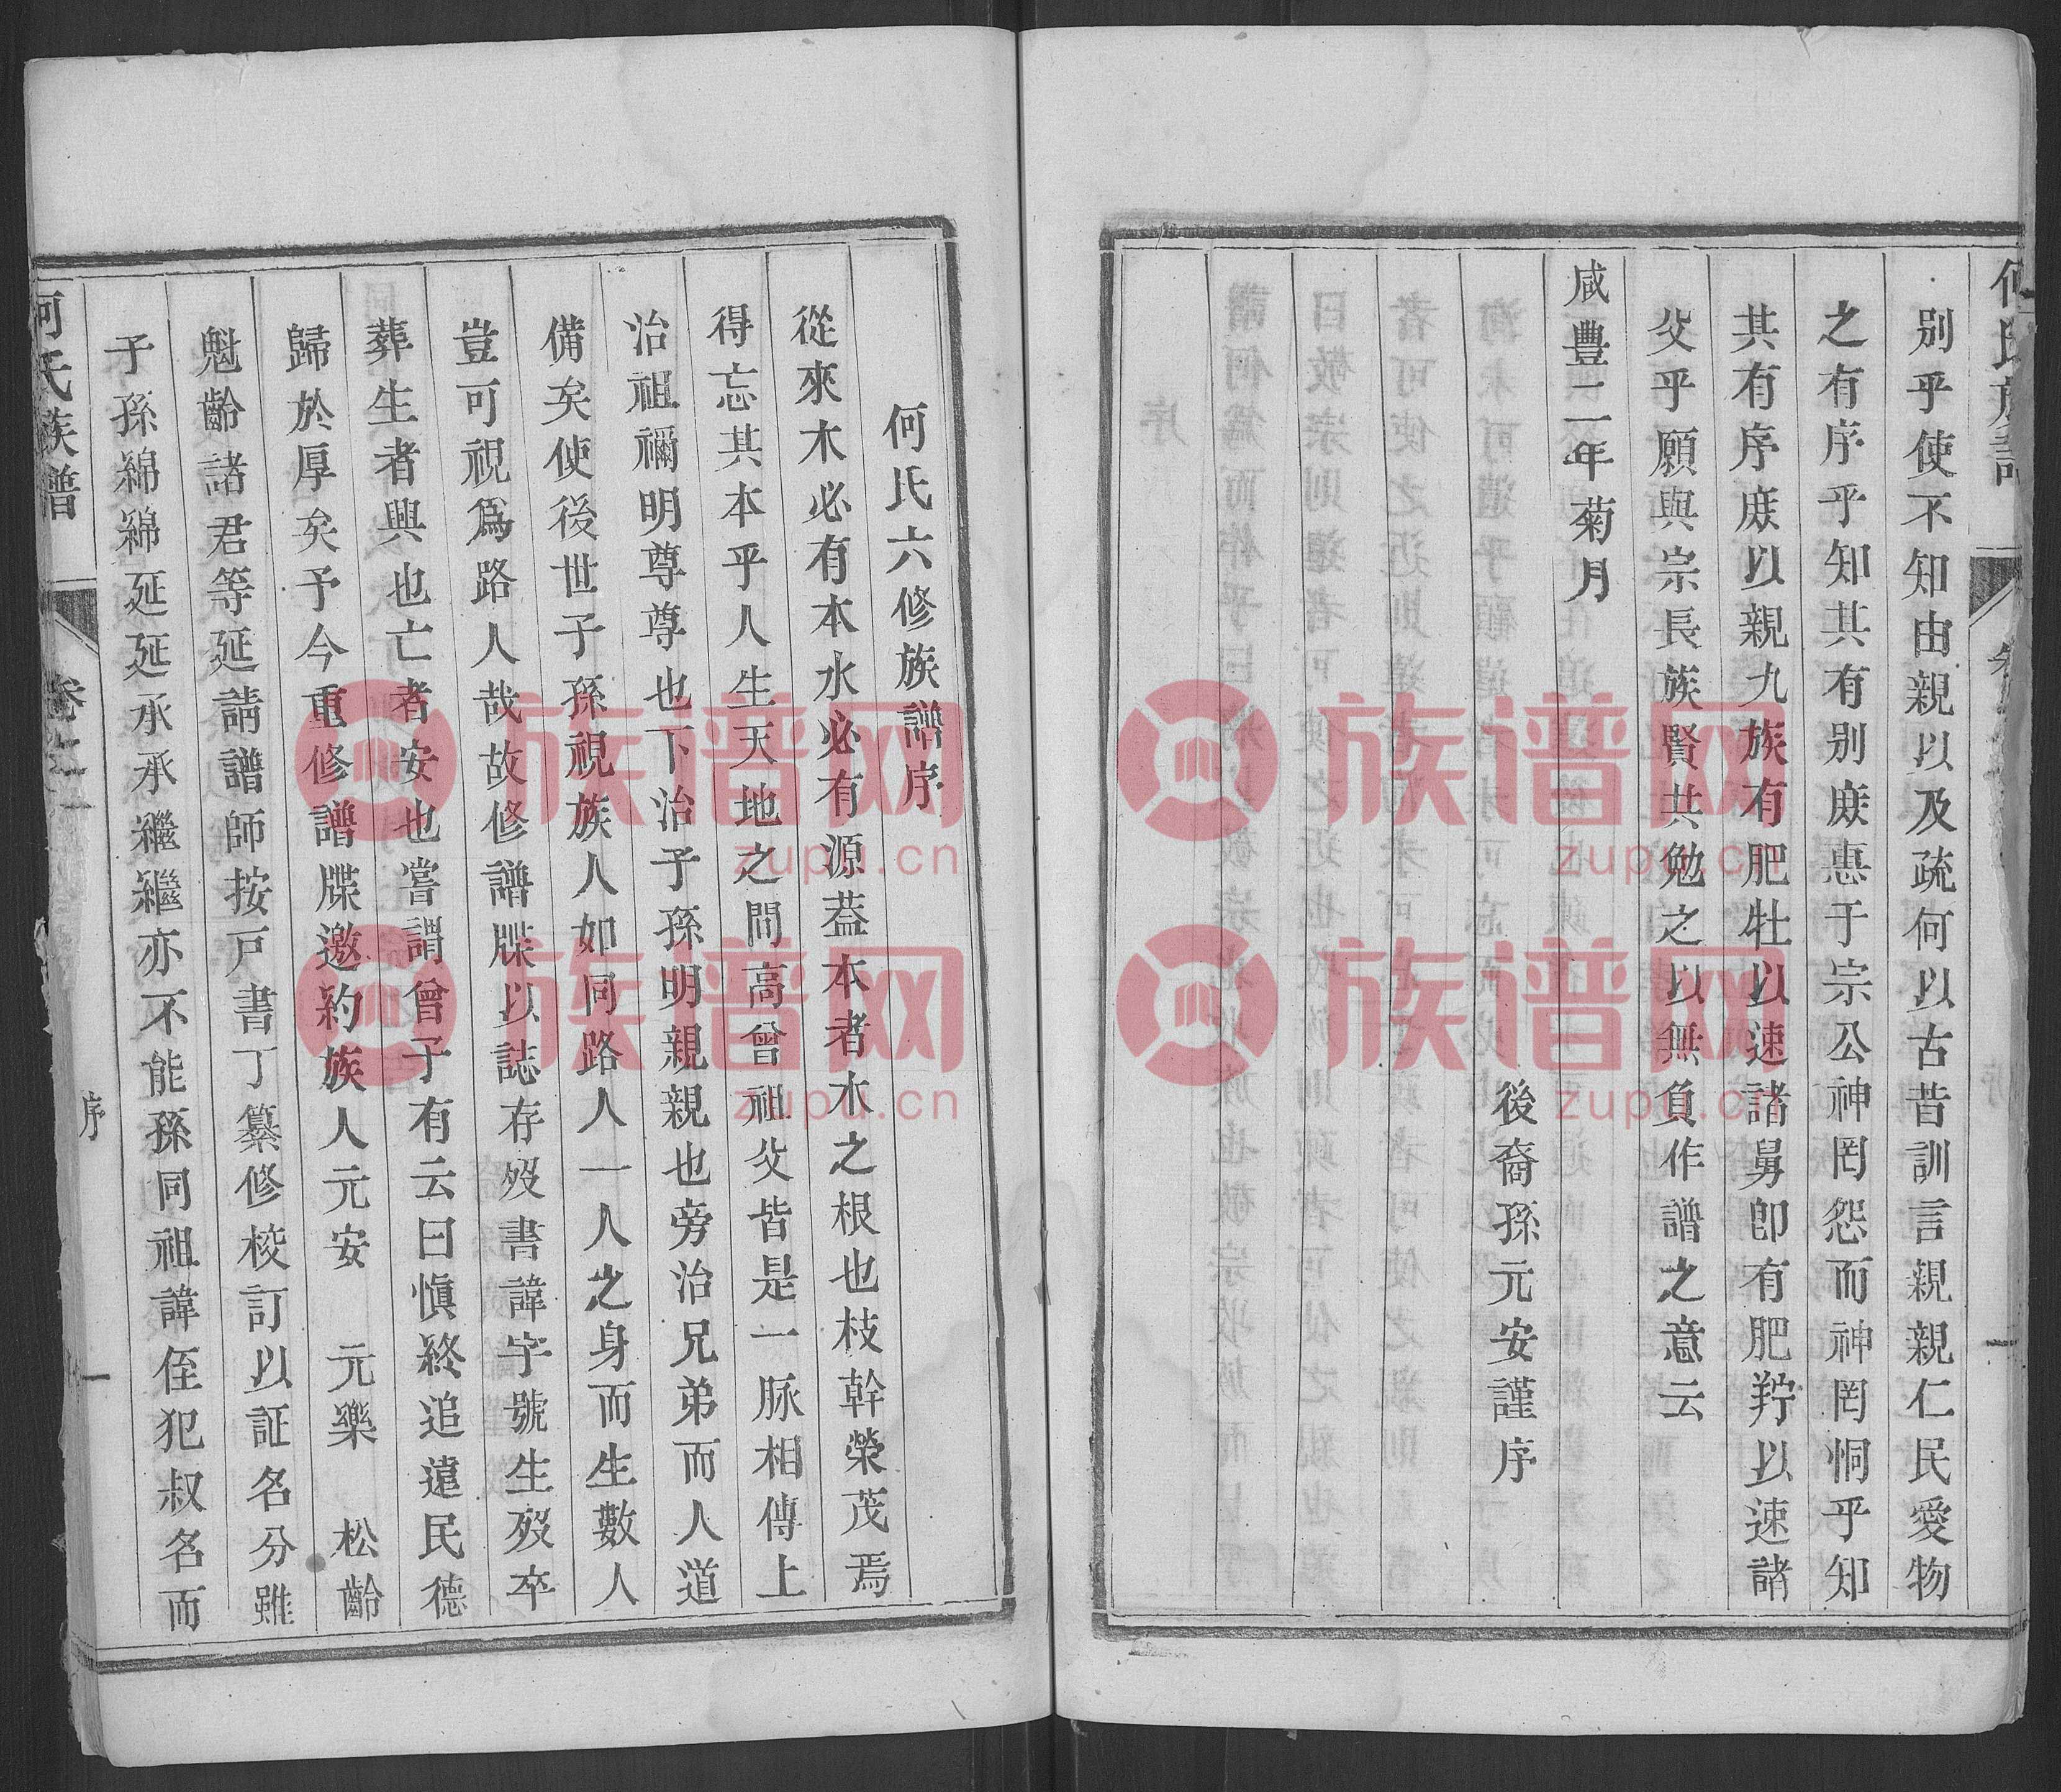 別乎使不知由親以及疏何以古昔訓言親親仁民愛物
之有序乎知其有別庻惠于宗公神罔怨而神罔恫乎知
其有序庻以親九族有肥牡以速諸舅卽有肥羜以速諸
父乎願與宗長族賢共勉之以無負作譜之意云
咸豐二年菊月
後裔孫元安謹序
何氏六修族譜序
從來木必有本水必有源葢本者木之根也枝幹榮茂焉
得忘其本乎人生天地之間高曾祖父皆是一脉相傳上
治祖禰明尊尊也下治子孫明親親也旁治兄弟而人道
備矣使後世子孫視族人如同路人一人之身而生數人
豈可視爲路人哉故修譜牒以誌存歿書諱字號生歿卒
葬生者興也亡者安也嘗謂曾子有云曰愼終追遠民德
歸於厚矣予今重修譜牒邀約族人元安 元樂 松齡
魁齡諸君等延請譜師按戸書丁纂修校訂以証名分雖
子孫綿綿延延承承繼繼亦不能孫同祖諱侄犯叔名而
何氏族譜
序
一
族谱网
zupu.cn
族谱网
zupu.cn
族谱网
zupu.cn
族谱网
zupu.cn